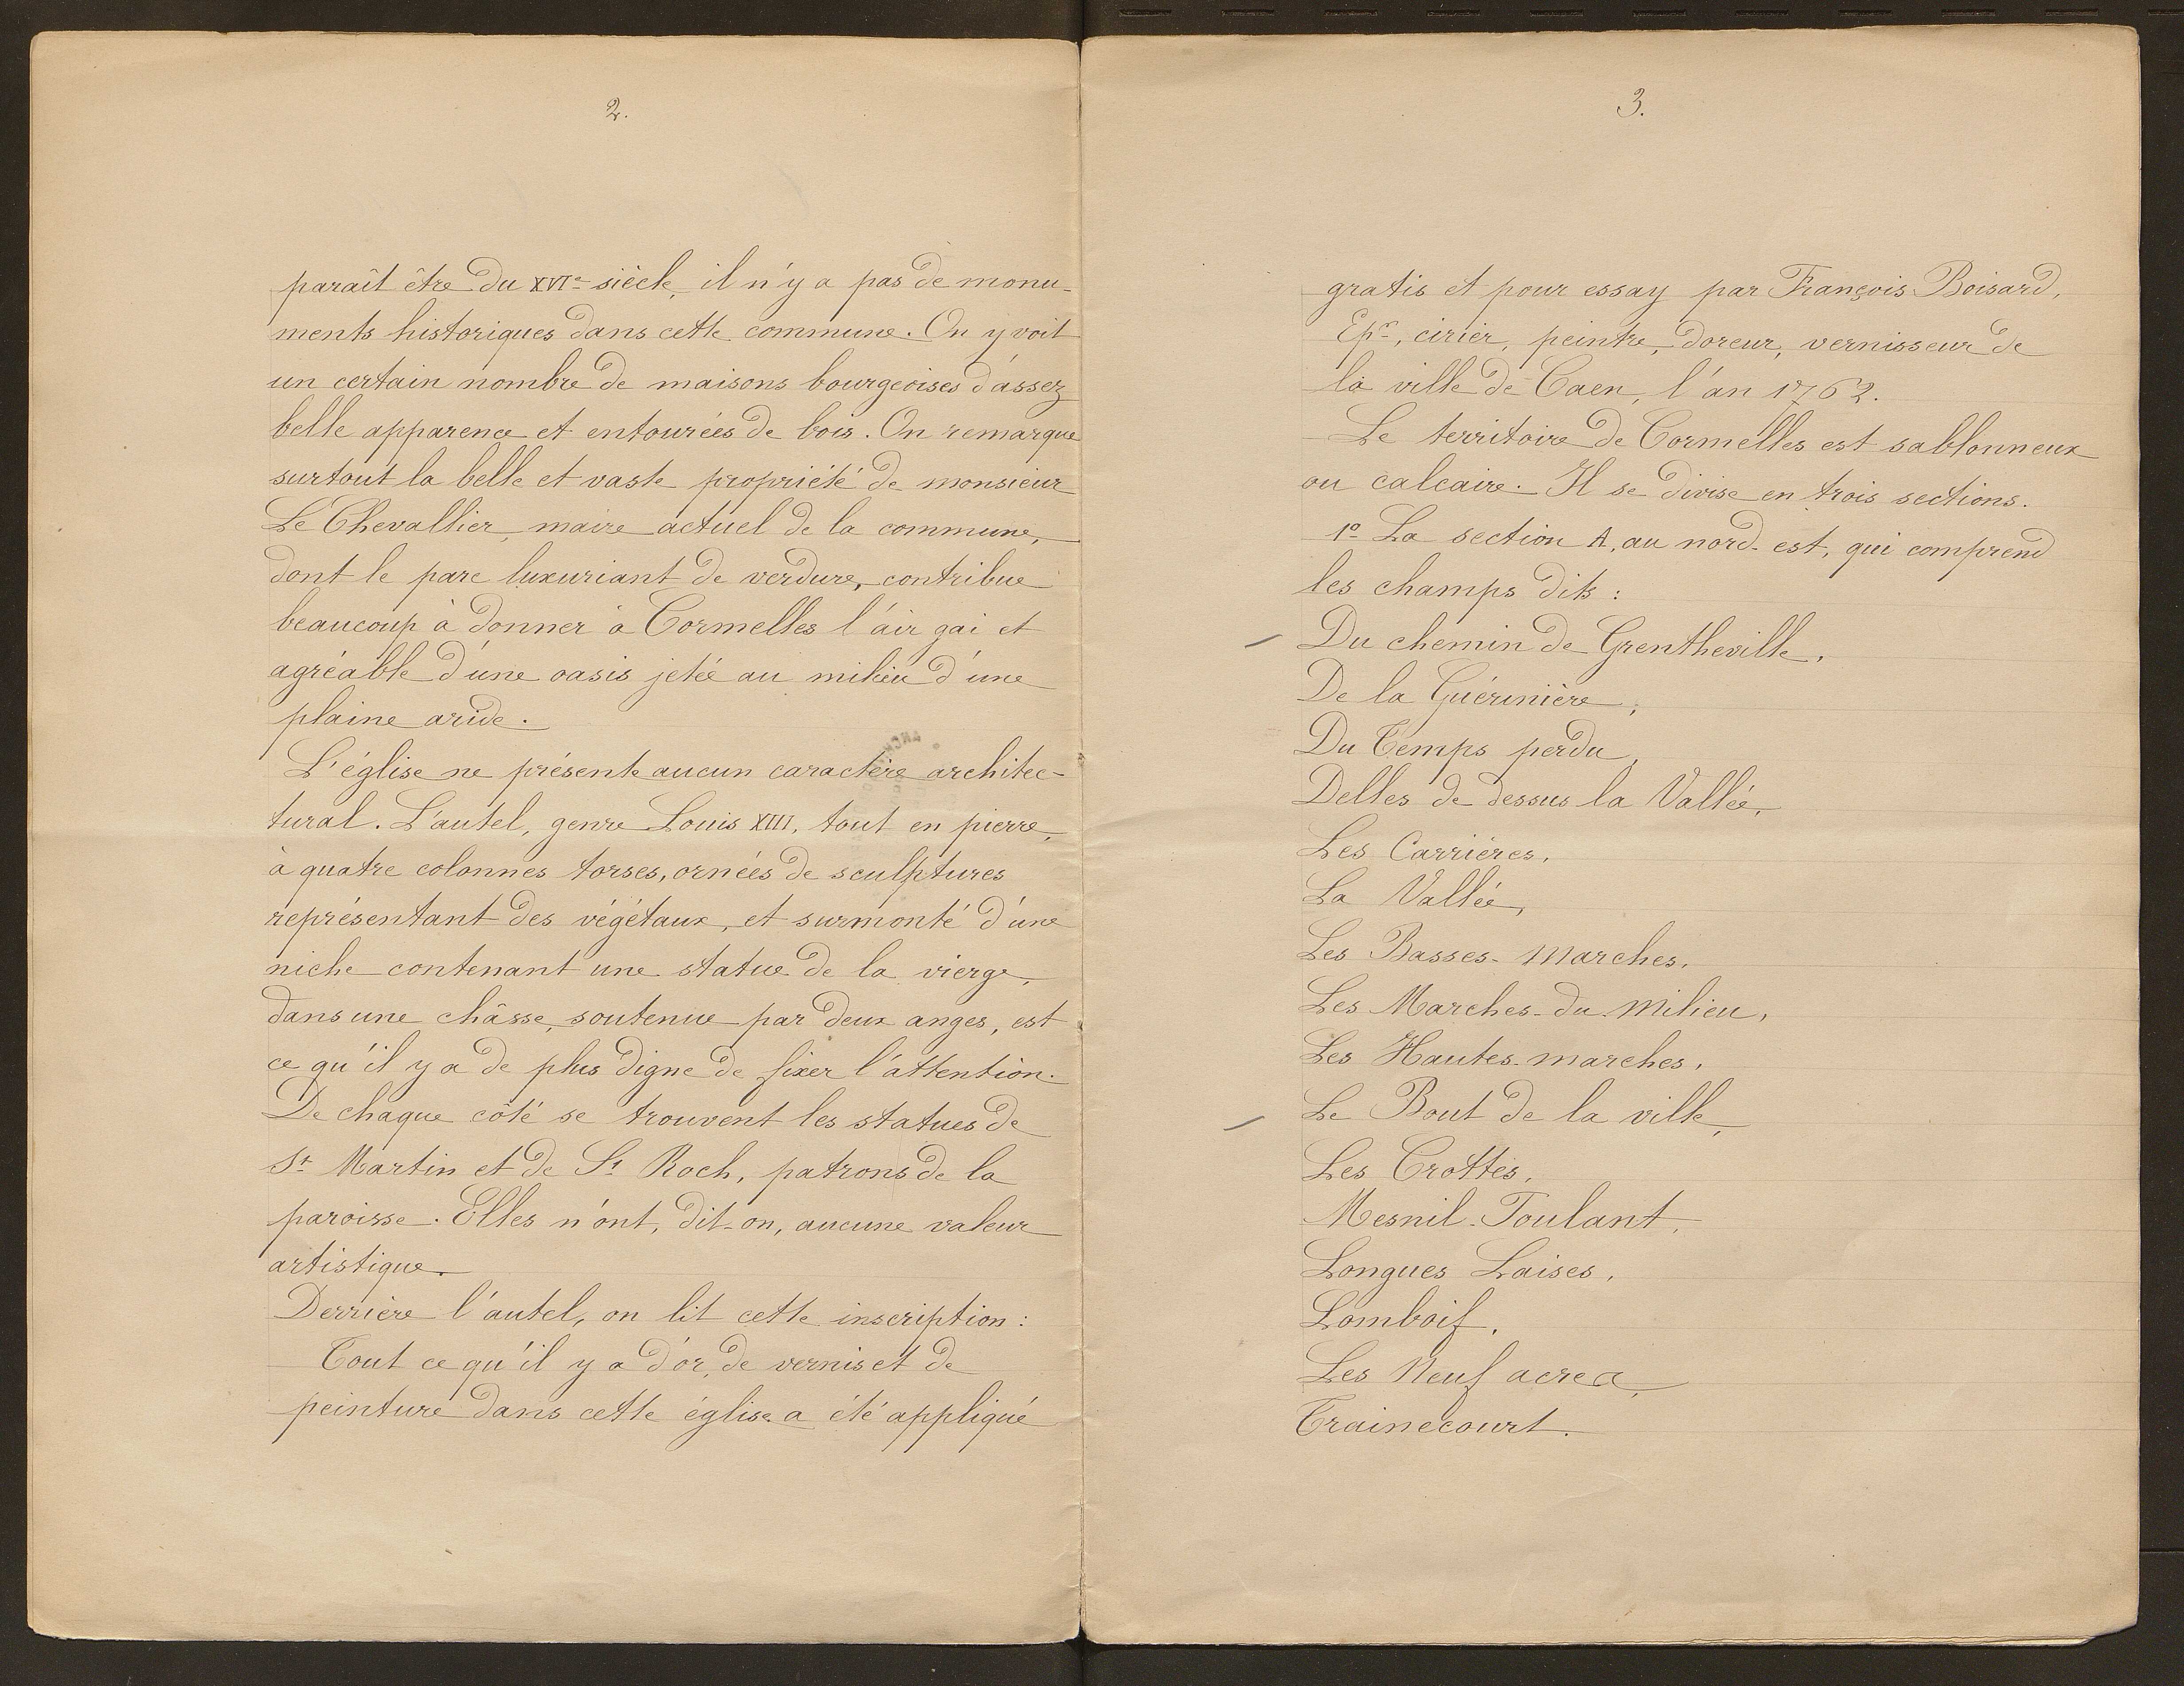 2.
paraît être du XVIe siècle, il n'y a pas de monu-
ments historiques dans cette commune. On y voit
un certain nombre de maisons bourgeoises d'assez
belle apparence et entourées de bois. On remarque
surtout la belle et vaste propriété de monsieur
Le Chevallier, maire actuel de la commune,
dont le parc luxuriant de verdure, contribue
beaucoup à donner à Cormelles l'air gai et
agréable d'une oasis jetée au milieu d'une
plaine aride.
L'église ne présente aucun caractère architec-
tural. L'autel, genre Louis XIII, tout en pierre,
à quatre colonnes torses, ornées de sculptures
représentant des végétaux, et surmonté d'une
niche contenant une statue de la vierge,
dans une châsse, soutenue par deux anges, est
ce qu'il y a de plus digne de fixer l'attention.
De chaque côté se trouvent les statues de
St Martin et de St Roch, patrons de la
paroisse. Elles n'ont, dit-on, aucune valeur
artistique.
Derrière l'autel, on lit cette inscription :
Tout ce qu'il y a d'or, de vernis et de
peinture dans cette église a été appliqué
3.
gratis et pour essay par François Boisard,
Epr, cirier, peintre, doreur, vernisseur de
la ville de Caen, l'an 1762.
Le territoire de Cormelles est sablonneux
ou calcaire. Il se divise en trois sections.
1o La section A, au nord-est, qui comprend
les champs dits :
Du chemin de Grentheville,
De la Guérinière,
Du Temps perdu,
Delles de dessus la Vallée,
Les Carrières,
La Vallée,
Les Basses-marches,
Les Marches-du-milieu,
Les Hautes-marches,
Le Bout de la ville,
Les Crottes,
Mesnil-Toulant,
Longues Laises,
Lomboif,
Les Neuf acres,
Trainecourt.